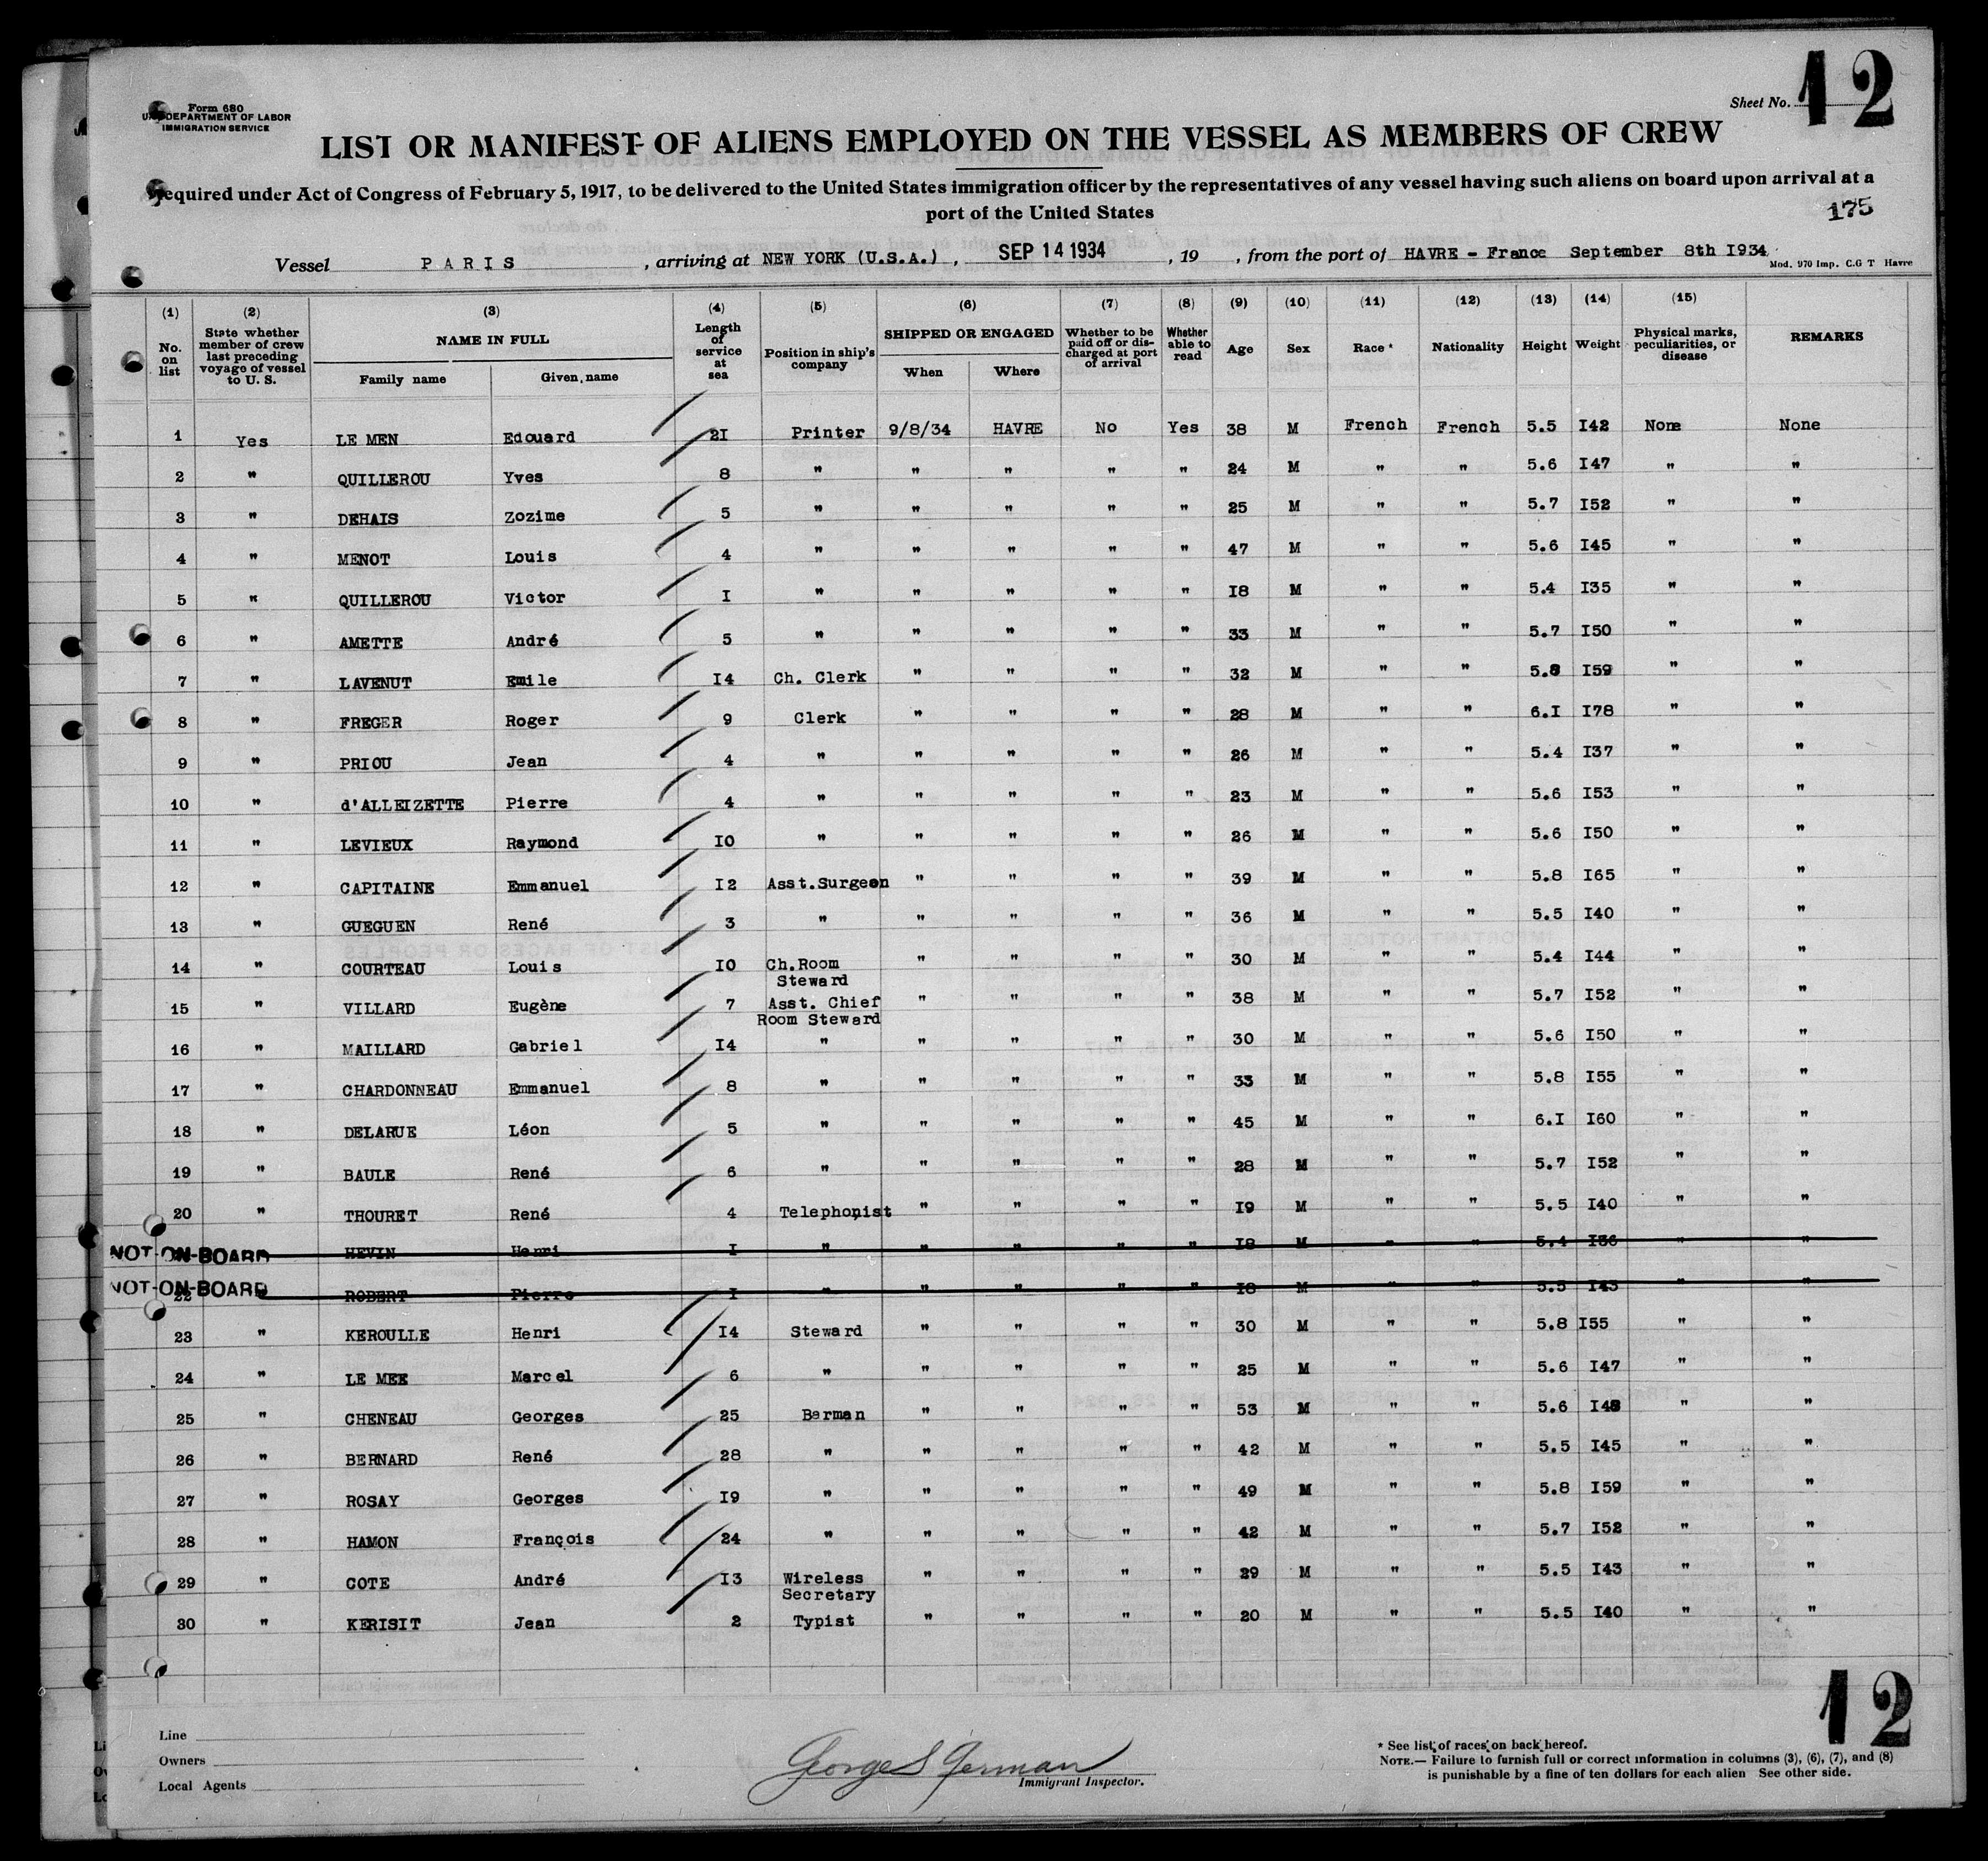 Form 680
U.S. DEPARTMENT OF LABOR
IMMIGRATION SERVICE
Sheet No. 12
LIST OR MANIFEST OF ALIENS EMPLOYED ON THE VESSEL AS MEMBERS OF CREW
Required under Act of Congress of February 5, 1917, to be delivered to the United States immigration officer by the representatives of any vessel having such aliens on board upon arrival at a
port of the United States
175
Vessel PARIS, arriving at NEW YORK (U.S.A.), SEP 14 1934, 19 , from the port of HAVRE - France September 8th I934
Mod. 970 Imp. C.G T Havre
(1) (2) (3) (4) (5) (6) (7) (8) (9) (10) (11) (12) (13) (14) (15)
No. on list State whether member of crew last preceding voyage of vessel to U. S. NAME IN FULL Family name Given name Length of service at sea Position in ship's company SHIPPED OR ENGAGED When Where Whether to be paid off or discharged at port of arrival Whether able to read Age Sex Race * Nationality Height Weight Physical marks, peculiarities, or disease REMARKS
1 Yes LE MEN Edouard 2I Printer 9/8/34 HAVRE No Yes 38 M French French 5.5 I42 None None
2 " QUILLEROU Yves 8 " " " " " 24 M " " 5.6 I47 " "
3 " DEHAIS Zozime 5 " " " " " 25 M " " 5.7 I52 " "
4 " MENOT Louis 4 " " " " " 47 M " " 5.6 I45 " "
5 " QUILLEROU Victor I " " " " " I8 M " " 5.4 I35 " "
6 " AMETTE André 5 " " " " " 33 M " " 5.7 I50 " "
7 " LAVENUT Emile I4 Ch. Clerk " " " " 32 M " " 5.8 I59 " "
8 " FREGER Roger 9 Clerk " " " " 28 M " " 6.I I78 " "
9 " PRIOU Jean 4 " " " " " 26 M " " 5.4 I37 " "
10 " d'ALLEIZETTE Pierre 4 " " " " " 23 M " " 5.6 I53 " "
11 " LEVIEUX Raymond IO " " " " " 26 M " " 5.6 I50 " "
12 " CAPITAINE Emmanuel I2 Asst.Surgeon " " " " 39 M " " 5.8 I65 " "
13 " GUEGUEN René 3 " " " " " 36 M " " 5.5 I40 " "
14 " COURTEAU Louis IO Ch.Room Steward " " " " 30 M " " 5.4 I44 " "
15 " VILLARD Eugène 7 Asst. Chief Room Steward " " " " 38 M " " 5.7 I52 " "
16 " MAILLARD Gabriel I4 " " " " " 30 M " " 5.6 I50 " "
17 " CHARDONNEAU Emmanuel 8 " " " " " 33 M " " 5.8 I55 " "
18 " DELARUE Léon 5 " " " " " 45 M " " 6.I I60 " "
19 " BAULE René 6 " " " " " 28 M " " 5.7 I52 " "
20 " THOURET René 4 Telephonist " " " " I9 M " " 5.5 I40 " "
NOT-ON-BOARD HEVIN Henri I " " " " " I8 M " " 5.4 I36 " "
NOT-ON-BOARD 22 ROBERT Pierre I " " " " " I8 M " " 5.5 I43 " "
23 " KEROULLE Henri I4 Steward " " " " 30 M " " 5.8 I55 " "
24 " LE MEE Marcel 6 " " " " " 25 M " " 5.6 I47 " "
25 " CHENEAU Georges 25 Barman " " " " 53 M " " 5.6 I48 " "
26 " BERNARD René 28 " " " " " 42 M " " 5.5 I45 " "
27 " ROSAY Georges I9 " " " " " 49 M " " 5.8 I59 " "
28 " HAMON François 24 " " " " " 42 M " " 5.7 I52 " "
29 " COTE André I3 Wireless Secretary " " " " 29 M " " 5.5 I43 " "
30 " KERISIT Jean 2 Typist " " " " 20 M " " 5.5 I40 " "
12
Line
Owners
Local Agents
George S German
Immigrant Inspector.
* See list of races on back hereof.
NOTE.— Failure to furnish full or correct information in columns (3), (6), (7), and (8)
is punishable by a fine of ten dollars for each alien See other side.